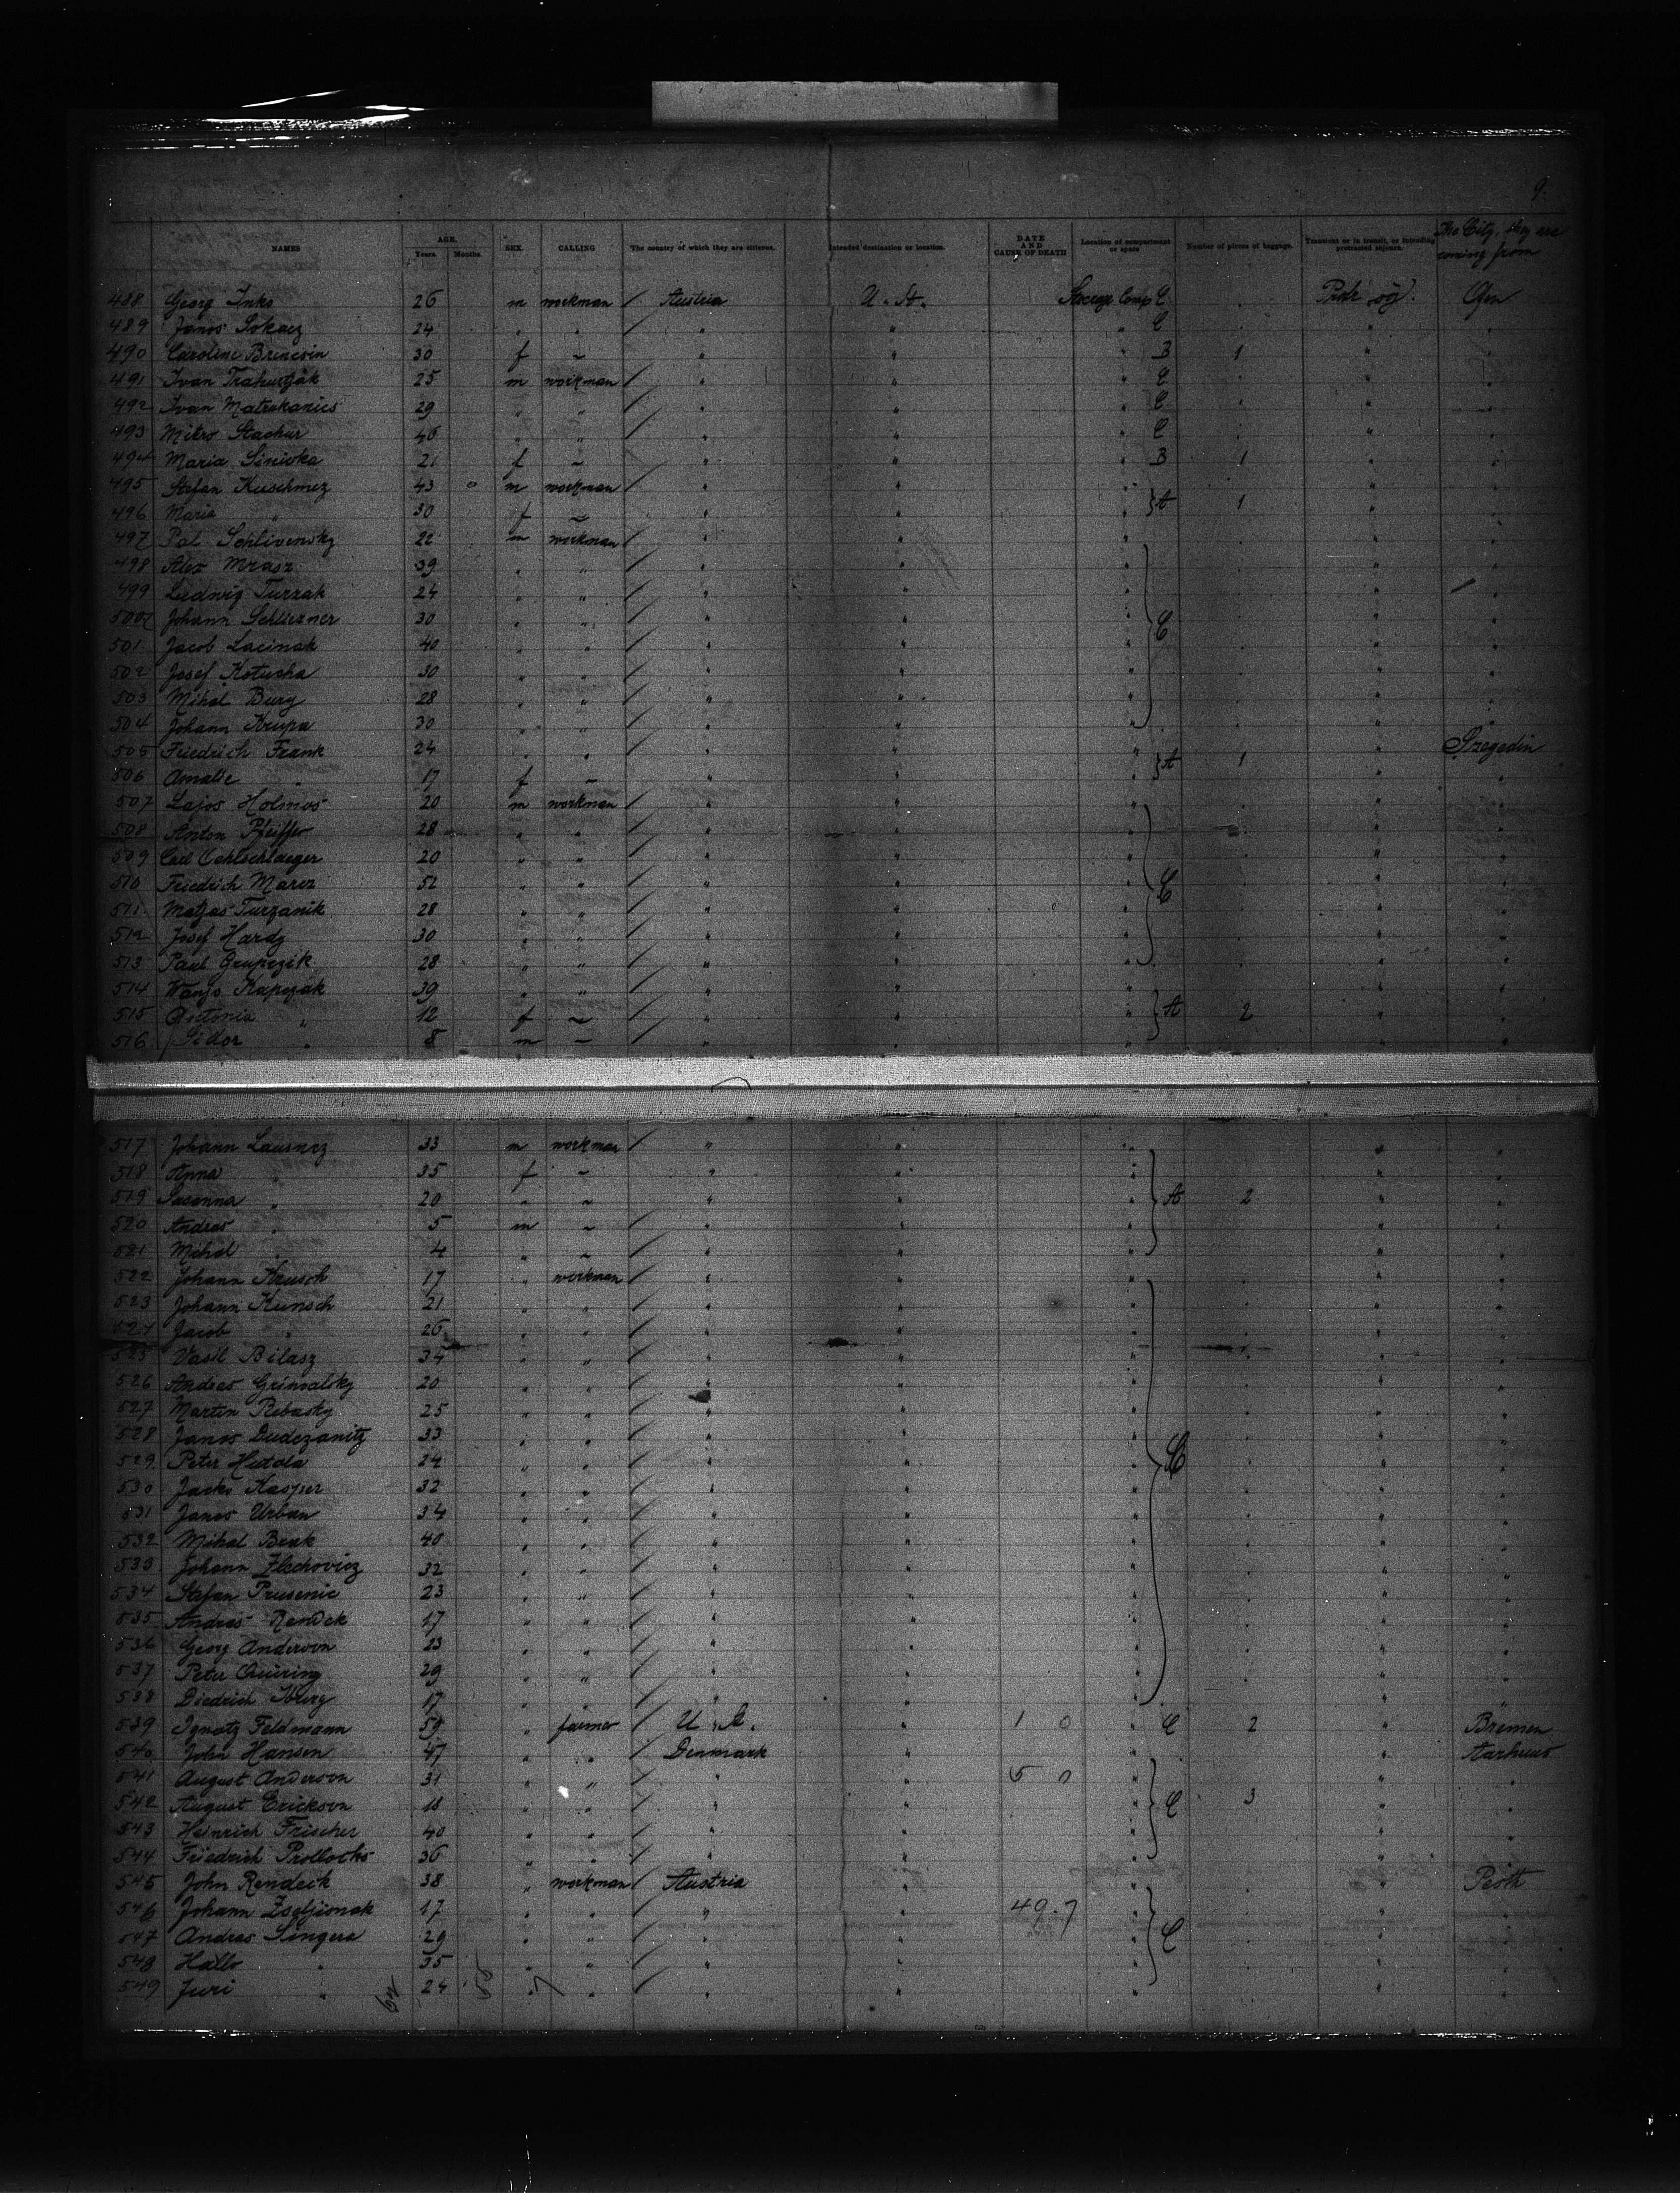 9.
NAMES AGE. Years. Months. SEX. CALLING The country of which they are citizens. Intended destination or location. DATE AND CAUSE OF DEATH Location of compartment or space Number of pieces of baggage. Transient or in transit, or intending protracted sojourn. The City, they are coming from
488 Georg Inko 26 m workman / Austria U. St. Steerage Comp C Protr soj. Ofen
489 Janos Sokacz 24 " " / " " " C " "
490 Caroline Brincsin 30 f ~ " " " B 1 " "
491 Ivan Trahustják 25 m workman / " " " C " "
492 Ivan Matrokanics 29 " " / " " " C " "
493 Mitro Stachur 46 " " / " " " C " "
494 Maria Sinivka 21 f ~ " " " B 1 " "
495 Stefan Kuschmez 43 m workman / " " " } A 1 " "
496 Maria " 30 f ~ " " " " "
497 Pal Schlivensky 22 m workman / " " " " "
498 Alex Mrasz 39 " " / " " " " "
499 Ludwig Turzak 24 " " / " " " " "
500 Johann Schliezner 30 " " / " " " } C " "
501 Jacob Lacinak 40 " " / " " " " "
502 Josef Kotucha 30 " " / " " " " "
503 Mihal Bury 28 " " / " " " " "
504 Johann Krupa 30 " " / " " " " "
505 Friedrich Frank 24 " " / " " " } A 1 " Szegedin
506 Amalie " 17 f ~ " " " " "
507 Lajos Holmos 20 m workman / " " " " "
508 Anton Pfeiffer 28 " " / " " " " "
509 Carl Oehlschlaeger 20 " " / " " " " "
510 Friedrich Marez 52 " " / " " " } C " "
511 Matjas Turzanik 28 " " / " " " " "
512 Josef Hardy 30 " " / " " " " "
513 Paul Grupczik 28 " " / " " " " "
514 Wanjo Kapczak 39 " " / " " " " "
515 Antonia " 12 f ~ / " " " } A 2 " "
516 Sidor " 8 m ~ / " " " " "
517 Johann Lausnez 33 m workman / " " " " "
518 Anna " 35 f ~ " " " " "
519 Susanna " 20 " ~ " " " } A 2 " "
520 Andras " 5 m ~ / " " " " "
521 Mihal " 4 " ~ / " " " " "
522 Johann Krusch 17 " workman / " " " " "
523 Johann Kunsch 21 " " / " " " " "
524 Jacob " 26 " " / " " " " "
525 Vasil Bilasz 34 " " / " " " " "
526 Andras Grimalsky 20 " " / " " " " "
527 Martin Rebasky 25 " " / " " " " "
528 Janos Dudczanitz 33 " " / " " " " "
529 Peter Hutola 24 " " / " " " } C " "
530 Jacko Kasper 32 " " / " " " " "
531 Janos Urban 34 " " / " " " " "
532 Mihal Brak 40 " " / " " " " "
533 Johann Zlechovicz 32 " " / " " " " "
534 Stefan Prusenic 23 " " / " " " " "
535 Andras 17 " " / " " " " "
536 Georg Anderson 23 " " / " " " " "
537 Peter 29 " " / " " " " "
538 Diedrich 17 " " / " " " " "
539 Ignatz Feldmann 59 " farmer U. S. " 1 0 " C 2 " Bremen
540 John Hansen 47 " " / Denmark " " " Aarhuus
541 August Anderson 31 " " / " " 5 0 " " "
542 August Erickson 18 " " / " " " } C 3 " "
543 Heinrich Frischer 40 " " / " " " " "
544 Friedrich Prollochs 36 " " / " " " " "
545 John Rendeck 38 " workman / Austria " " " Pesth
546 Johann Zseljionak 17 " " / " " 49.7 " " "
547 Andras Singera 29 " " / " " " } C " "
548 Hallo " 35 " " / " " " " "
549 Juri " 24 " " / " " " " "